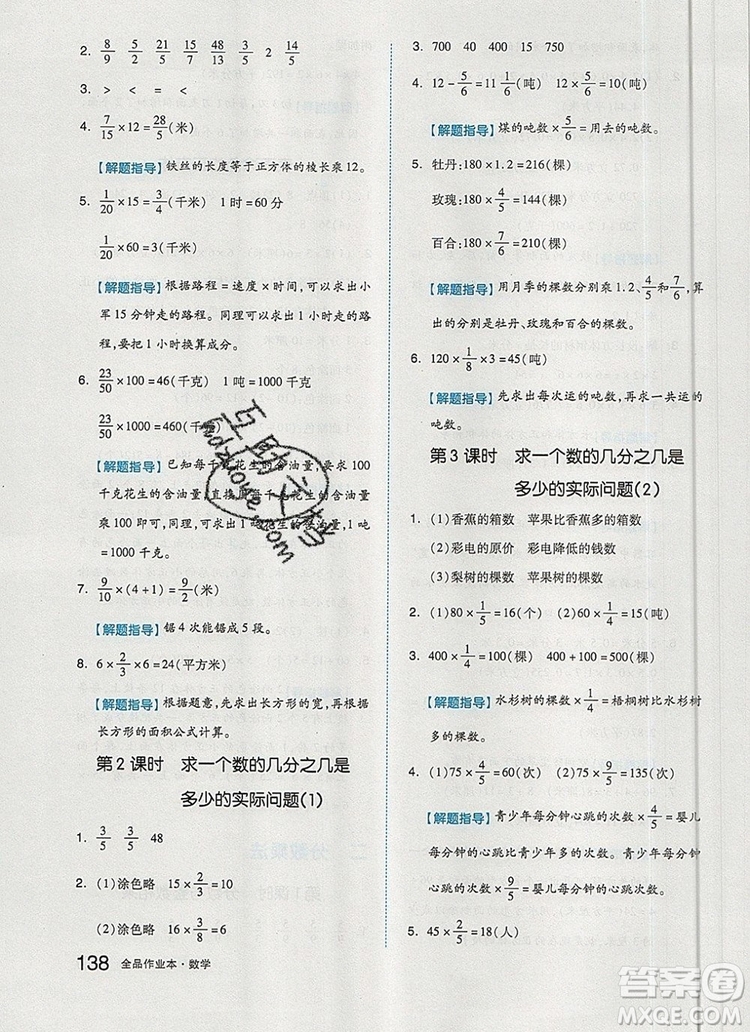 2. 8/9 5/2 15/2 48/5 48/13 3 2 14/5
3. > < = <
4. 7/15×12=28/5(米)
【解题指导】铁丝的长度等于正方体的棱长乘12。
5. 1/20×15=3/4(千米) 1时=60分
1/20×60=3(千米)
【解题指导】根据路程=速度×时间,可以求出小
军15分钟走的路程。同理可以求出1小时走的路
程,注意要把1小时换算成分。
6. 23/50×100=46(千克) 1吨=1000千克
23/50×1000=460(千克)
【解题指导】已知每千克花生的含油量,要求100
千克花生的含油量,直接用每千克花生的含油量
乘100即可,同理,可以求出1吨花生的含油量,1吨
=1000千克。
7. 9/10×(4+1)=9/2(米)
【解题指导】锯4次能锯成5段。
8. 6×2/3×6=24(平方米)
【解题指导】根据题意,先求出长方形的宽,再根据
长方形的面积公式计算。
第2课时 求一个数的几分之几是
多少的实际问题(1)
1. 3/5 3/5 48
2. (1)涂色略 15×2/3=10
(2)涂色略 16×3/8=6
138 全品作业本·数学
3. 700 40 400 15 750
4. 12-5/6=11 1/6(吨) 12×5/6=10(吨)
【解题指导】煤的吨数×5/6=用去的吨数。
5. 牡丹:180×1.2=216(棵)
玫瑰:180×4/5=144(棵)
百合:180×7/6=210(棵)
【解题指导】用月季的棵数分别乘1.2、4/5和7/6,算
出的分别是牡丹、玫瑰和百合的棵数。
6. 120×1/8×3=45(吨)
【解题指导】先求出每次运的吨数,再求一共运的
吨数。
第3课时 求一个数的几分之几是
多少的实际问题(2)
1. (1)香蕉的箱数 苹果比香蕉多的箱数
(2)彩电的原价 彩电降低的钱数
(3)梨树的棵数 苹果树的棵数
2. (1)80×1/5=16(个) (2)60×1/4=15(吨)
3. 400×1/4=100(棵) 400+100=500(棵)
【解题指导】水杉树的棵数×1/4=梧桐树比水杉树
多的棵数。
4. (1)75×4/5=60(次) (2)75×9/5=135(次)
【解题指导】青少年每分钟心跳的次数×4/5=婴儿
每分钟的心跳比青少年多的次数。青少年每分钟
心跳的次数×9/5=婴儿每分钟心跳的次数。
5. 45×2/5=18(人)
答案圈
MXQE.COM